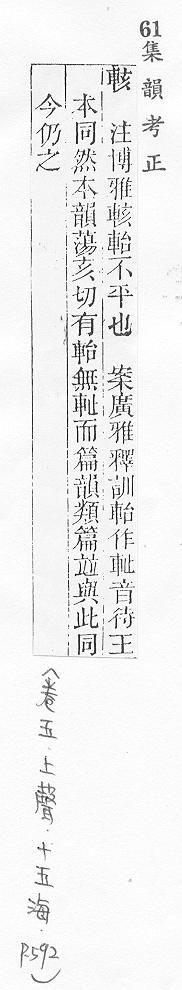 61集韻考正
䡋 注博雅䡋軩不平也 案廣雅釋訓軩作䡊音待王
本同然本韻蕩亥切有軩無䡊而篇韻類篇竝與此同
今仍之
(卷五.上聲.十五海.P.592)